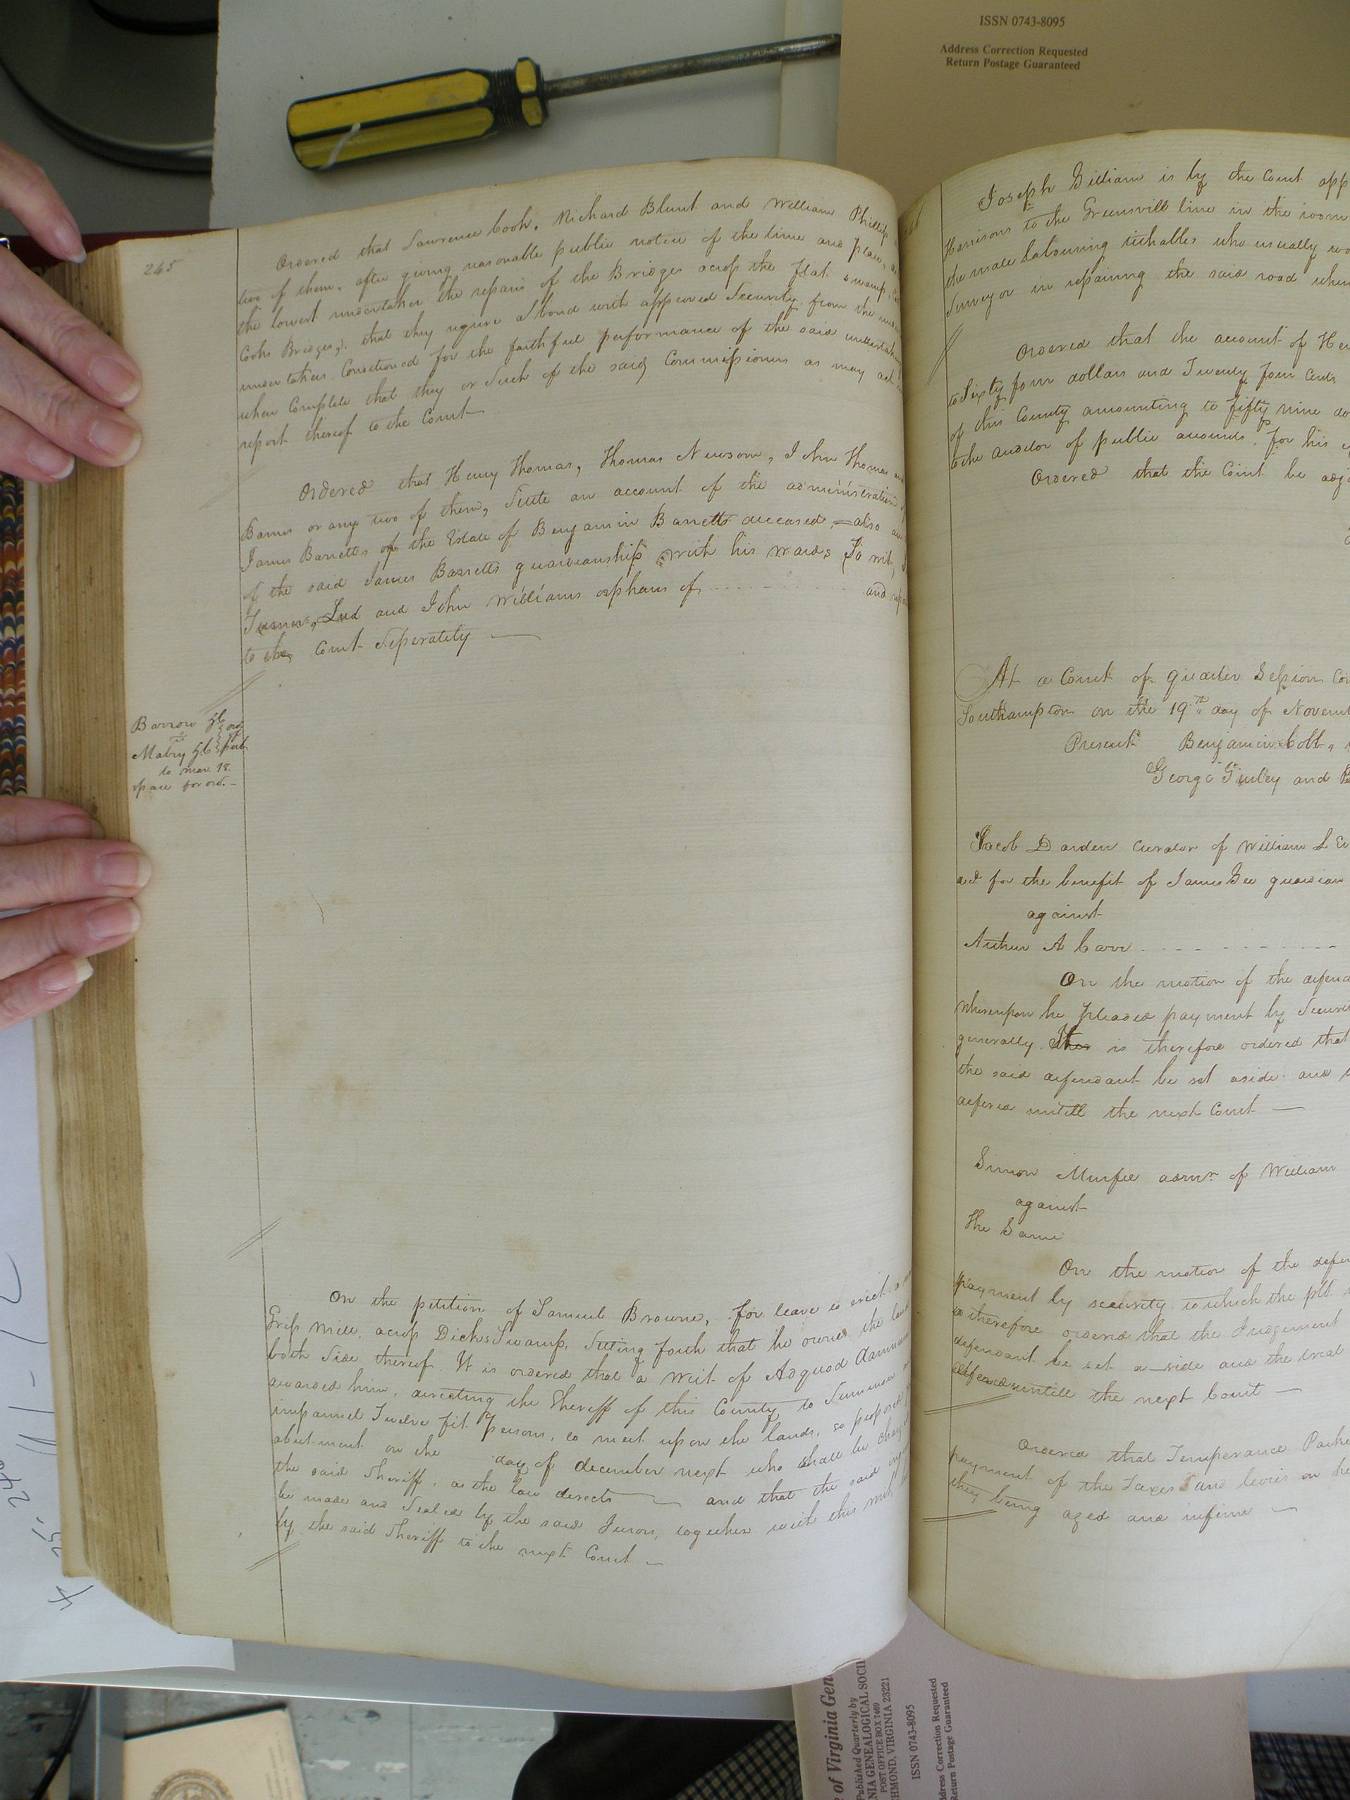 ISSN 0743-8095
Address Correction Requested
Return Postage Guaranteed
245
Ordered that Lawrence Cook, Richard Blunt and William Phillips
two of them, after giving reasonable public notice of the time and place,
the lowest undertaker the repairs of the Bridges across the flat swamp,
Cooks Bridges, that they require a bond with approved Security from the
undertaker Conditioned for the faithful performance of the said undertaking
when Complete that they or Such of the said Commissioners as may act
report thereof to the Court
Ordered that Henry Thomas, Thomas Newsom, John Thomas and
Barnes or any two of them, Settle an account of the administration of
James Barretts of the Estate of Benjamin Barretts deceased, also an
of the said James Barretts guardianship with his wards, To wit,
Turner, and John Williams orphans of and
to the Court Seperately
Barrow
vs
Mabry
to mar. 18.
space for ord.
On the petition of Samuel Browne, for leave to erect a
Grist Mill across Dicks Swamp, Setting forth that he owns the land
both Side thereof. It is ordered that a Writ of Adquod damnum
awarded him, directing the Sheriff of this County to Summon
impannel Twelve fit Persons, to meet upon the lands, so proposed
abutment on the day of december next who shall be charged
the said Sheriff, as the law directs and that the said
be made and Sealed by the said Jurors, together with this writ,
by the said Sheriff to the next Court
246
Joseph Gilliam is by the Court app
Harrisons to the Greensvill line in the room
the male labouring tithables who usually wo
Surveyor in repairing the said road when
Ordered that the account of He
to Sixty four dollars and Twenty four Cents
of this County amounting to fifty nine do
to the auditor of public accounts, for his
Ordered that the Court be adj
At a Court of quarter Session Con
Southampton on the 19th day of Novem
Present Benjamin Cobb,
George Gurley and B
Jacob Darden Curator of William L
and for the benefit of James Gee guardian
against
Arthur A Carr
On the motion of the defend
Whereupon he pleaded payment by Securi
generally. is therefore ordered that
the said defendant be set aside and
deferd untill the next Court
Simon Murfee admr. of William
against
The Same
On the motion of the defen
payment by security to which the plt
is therefore ordered that the Judgement
defendant be set a-side and the trial
untill the next Court
Ordered that Temperance Parke
payment of the Taxes and levies on he
they being aged and infirm
of Virginia Gen
Published Quarterly by
NIA GENEALOGICAL SOCI
POST OFFICE BOX 7469
HMOND, VIRGINIA 23221
ISSN 0743-8095
Address Correction Requested
Return Postage Guaranteed